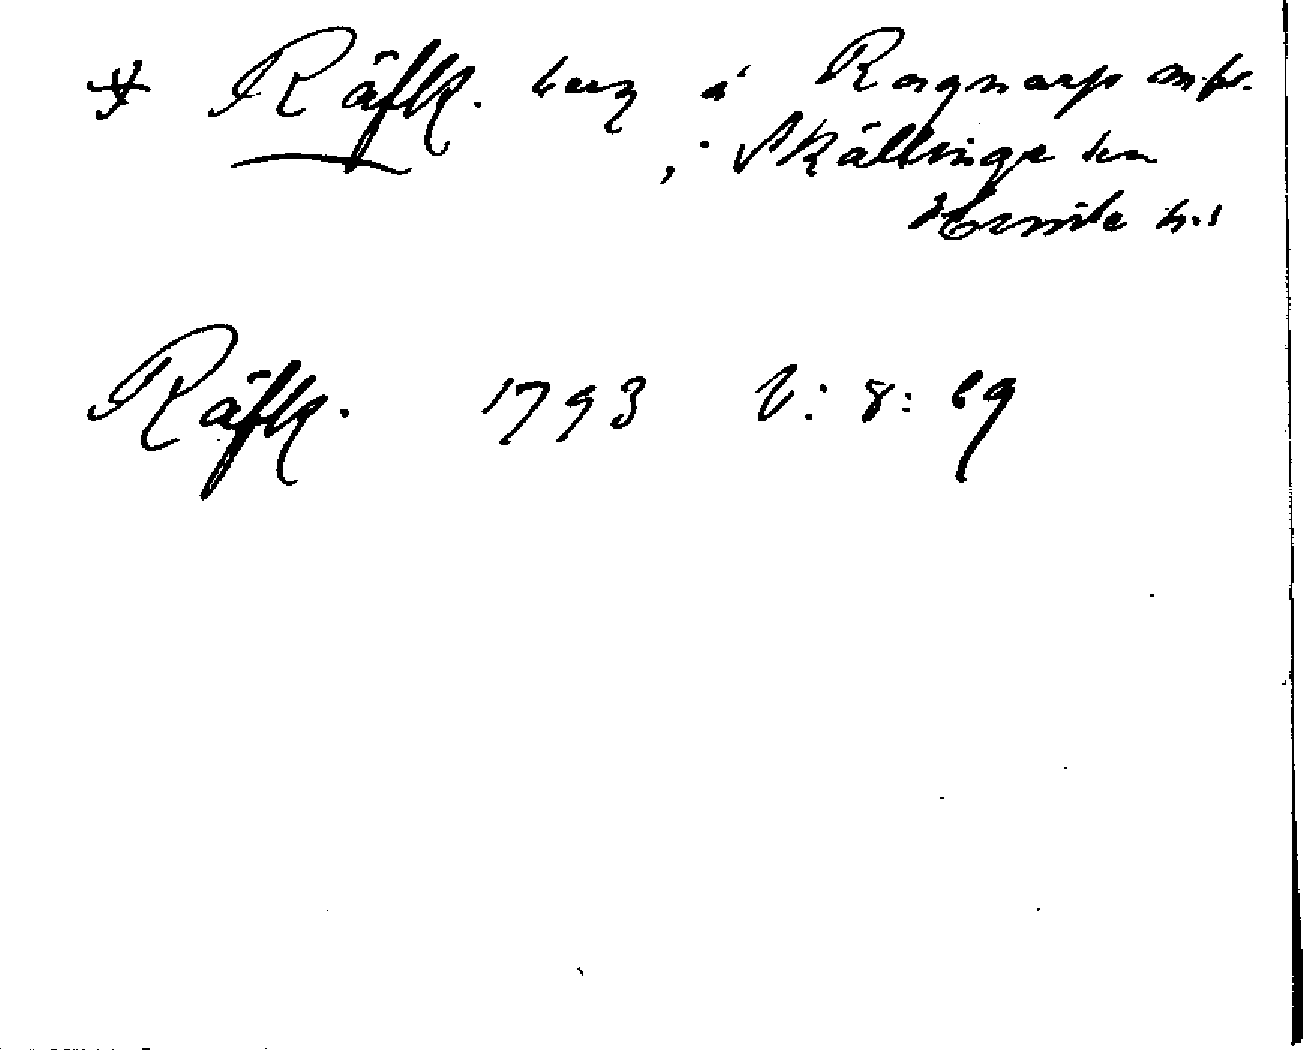 * Räfk. berg å Ragnarp
i Skällinge sn
Himle h:d
Räfk. 1793 V: 8: 69